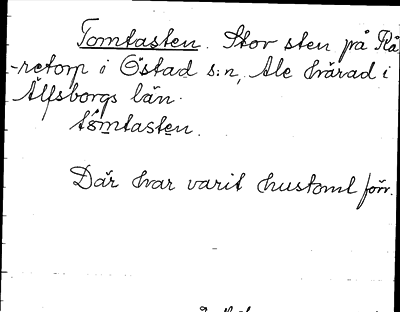 Tomtasten. Stor sten på Rå
-retorp i Östad s:n, Ale härad i
Älfsborgs län.
tömtasten.
Där har varit hustomt förr.